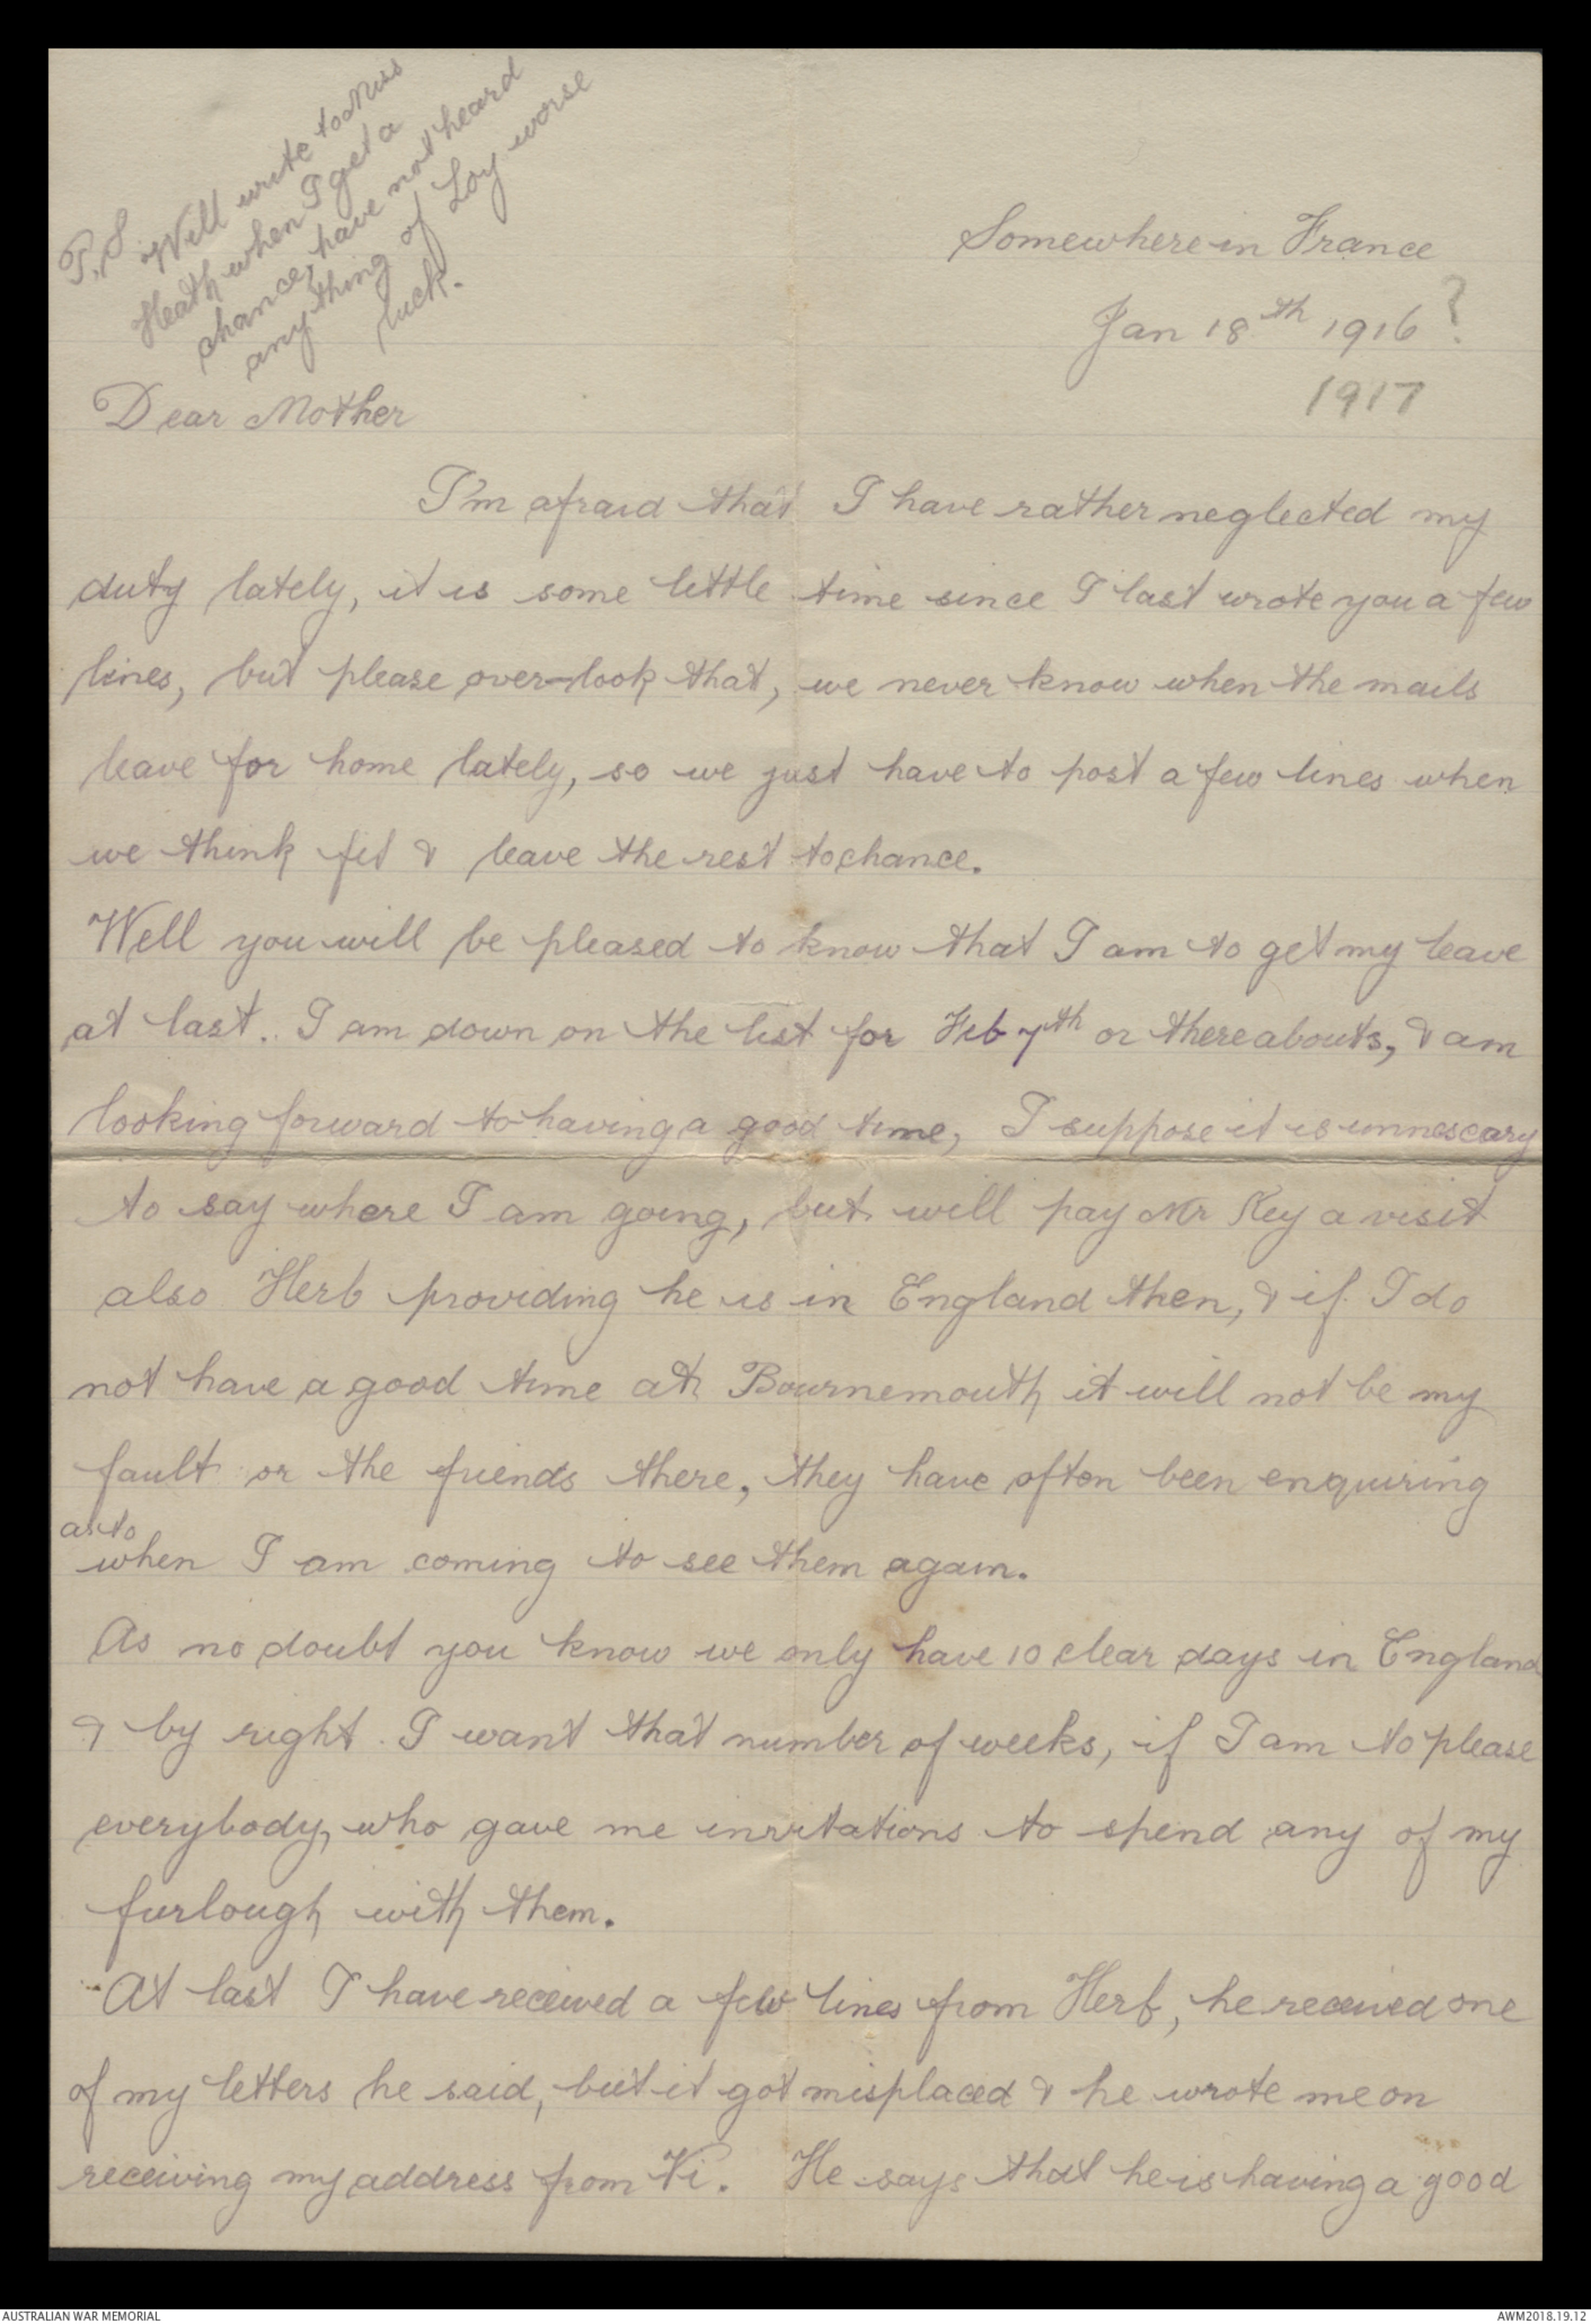 P.S Will write to Miss
Heath when I get a
chance, have not heard
anything of Loy worse
luck.
Somewhere in France
Jan 18th 1916?
1917
Dear Mother
I'm afraid that I have rather neglected my
duty lately, it is some little time since I last wrote you a few
lines, but please over-look that, we never know when the mails
leave for home lately, so we just have to post a few lines when
we think fit & leave the rest to chance.
Well you will be pleased to know that I am to get my leave
at last. I am down on the list for Feb 7th or thereabouts, & am
looking forward to having a good time, I suppose it is unnescary
to say where I am going, but will pay Mr Key a visit
also Herb providing he is in England then, & if I do
not have a good time at Bournemouth it will not be my
fault or the friends there, they have often been enquiring
as to
when I am coming to see them again.
As no doubt you know we only have 10 clear days in England
& by right I want that number of weeks, if I am to please
everybody, who gave me invitations to spend any of my
furlough with them.
At last I have received a few lines from Herb, he received one
of my letters he said, but it got misplaced & he wrote me on
receiving my address from Vi. He says that he is having a good
AUSTRALIAN WAR MEMORIAL
AWM2018.19.12